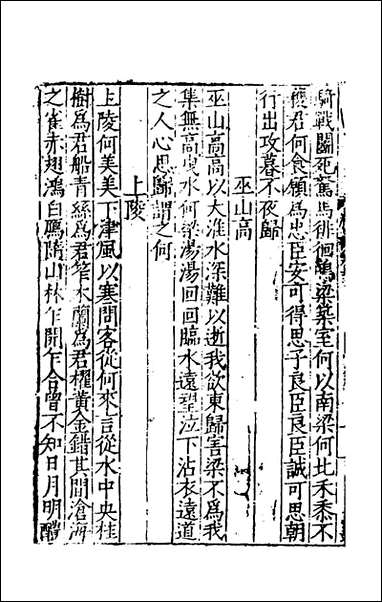 騎戰鬭死駑馬徘徊鳴梁築室何以南梁何北禾黍不
穫君何食願為忠臣安可得思子良臣良臣誠可思朝
行出攻暮不夜歸
巫山高
巫山高高以大淮水深難以逝我欲東歸害梁不為我
集無高曳水何梁湯湯回回臨水遠望泣下沾衣遠道
之人心思歸謂之何
上陵
上陵何美美下津風以寒問客從何來言從水中央桂
樹為君船青絲為君笮木蘭為君櫂黃金錯其間滄海
之雀赤翅鴻白鴈隨山林乍開乍合曾不知日月明醴